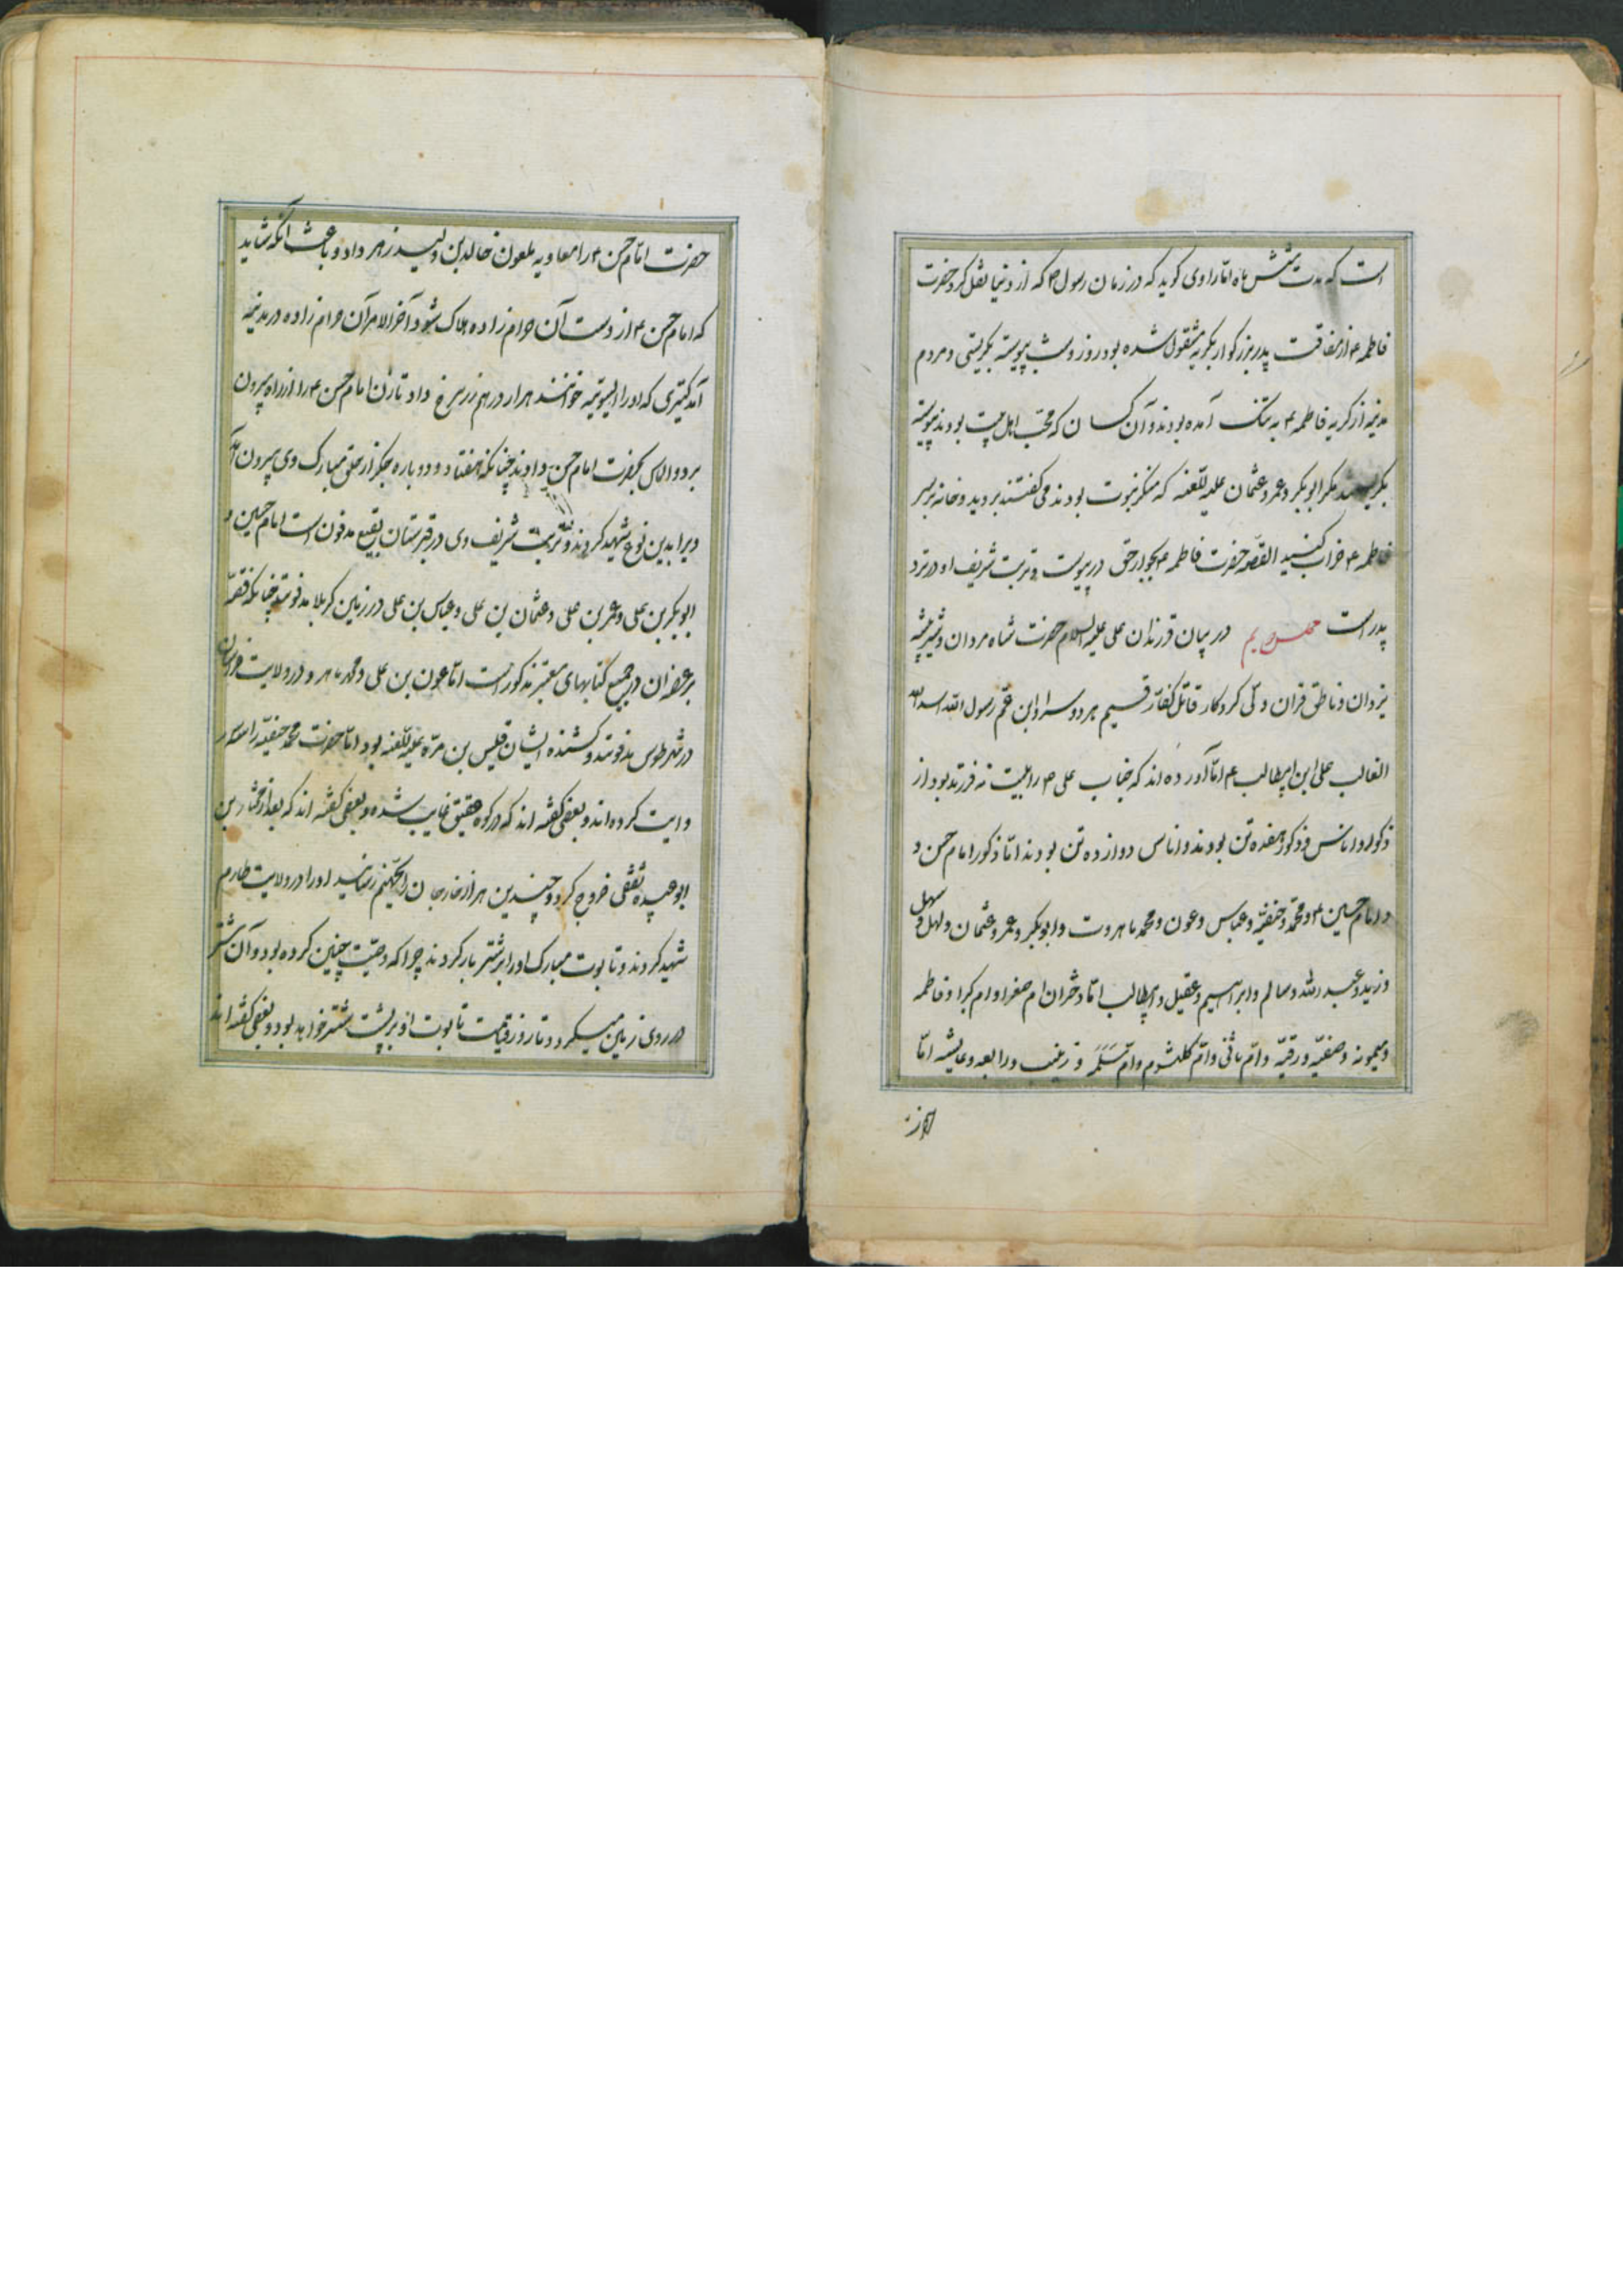 است که مدت شش ماه اما راوی کوید که در زمان رسول ص که از دنیا نقل کرد حضرت
فاطمه ع از مفاقت پدر بزرکوار بکریه مشقول شده بود روز و شب پیوسته بکریستی و مردم
مدنیه از کریه فاطمه ع به تنک آمده بودند و آن کسان که محب اهل بیت بودند پیوسته
بکریستند مکر ابوبکر و عمر و عثمان علیه للعنه که منکر نبوت بودند می کفتند بروید و خانه بر سر
فاطمه ع خراب کنید القصه حضرت فاطمه ع بجوار حق در پیوست و تربت شریف او در نزد
پدر است در بیان فرزندان علی علیه السلام حضرت شاه مردان و شیر بیشه
یزدان و ناطق قران و لی کردکار قاتل کفار قسیم هر دو سرا و ابن عم رسول الله اسد الله
الغالب علی ابن ابیطالب ع اما آورده اند که جناب علی ع را بیست نه فرزند بود از
ذکور و اناس و ذکور هفده تن بودند و اناس دوازده تن بودند اما ذکور امام حسن و
و امام حسین ع و محمد و حنفیه و عباس و عون و محمد ماهروت و ابوبکر و عمر و عثمان و لهل و سهل
و زید و عبد الله و سالم و ابراهیم و عقیل و ابیطالب اما دختران ام صغرا و ام کبرا و فاطمه
و میمونه و صفیه و رقیه و ام هانی و ام کلثوم و ام سلمه و زینب و رابعه و عایشه اما
حضرت امام حسن ع را معاویه ملعون خالد بن ولید زهر داد و باعث انکه شاید
که امام حسن ع از دست آن حرام زاده هلاک شود آخر الامر آن حرام زاده در مدنیه
آمد کنیزی که او را السوتیه خوانند هزار درهم زر سرخ داد تا زن امام حسن ع را از راه بیرون
برد و الماس بحضرت امام حسن دادند چنانکه هفتاد و دو باره جکر از حلق مبارک وی بیرون آمد
ویرا بدین نوع شهید کردند و تربت شریف وی در قبرستان بقیع مدفون است امام حسین و
ابوبکر بن علی و عمر بن علی و عثمان بن علی و عباس بن علی در زمین کربلا مدفونند چنانکه قصه
بر عضه ان در جمیع کتابهای معتبر مذکور است اما عون بن علی و محمد ماهرو در ولایت خراسان
در شهر طوس مدفونند و کشنده ایشان قلیس بن مره علیه للعنه بود اما حضرت محمد حنفیه را
وایت کرده اند و بعضی کفته اند که در کوه عقیق غایب شده و بعضی کفته اند که بعد از مختار بن
ابوعبیده ثقفی خروج کرد و چندین هزار خارجان را بجهنم رسانید او را در ولایت طارم
شهید کردند و تابوت مبارک او را بر شتر بار کردند چرا که وصیت چنین کرده بود و آن شتر
در روی زمین میکردد و تا روز قیامت تابوت او بر پشت شتر خواهد بود و بعضی کفته اند